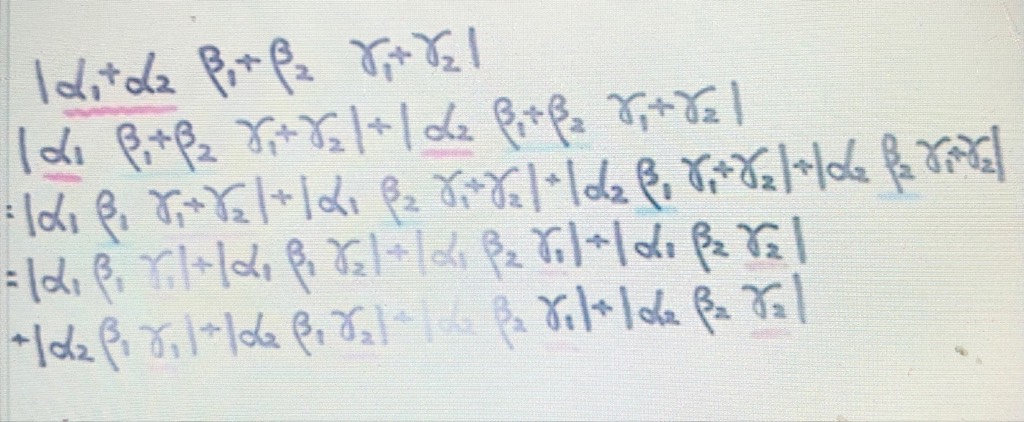 |α₁+α₂ β₁+β₂ γ₁+γ₂|
|α₁ β₁+β₂ γ₁+γ₂|+|α₂ β₁+β₂ γ₁+γ₂|
=|α₁ β₁ γ₁+γ₂|+|α₁ β₂ γ₁+γ₂|+|α₂ β₁ γ₁+γ₂|+|α₂ β₂ γ₁+γ₂|
=|α₁ β₁ γ₁|+|α₁ β₁ γ₂|+|α₁ β₂ γ₁|+|α₁ β₂ γ₂|
+|α₂ β₁ γ₁|+|α₂ β₁ γ₂|+|α₂ β₂ γ₁|+|α₂ β₂ γ₂|